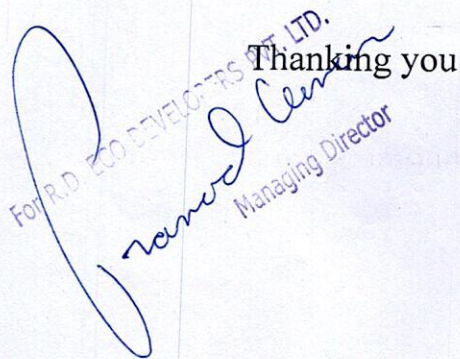 Thanking you
For R.D. ECO DEVELOPERS PVT. LTD.
Pramod
Managing Director